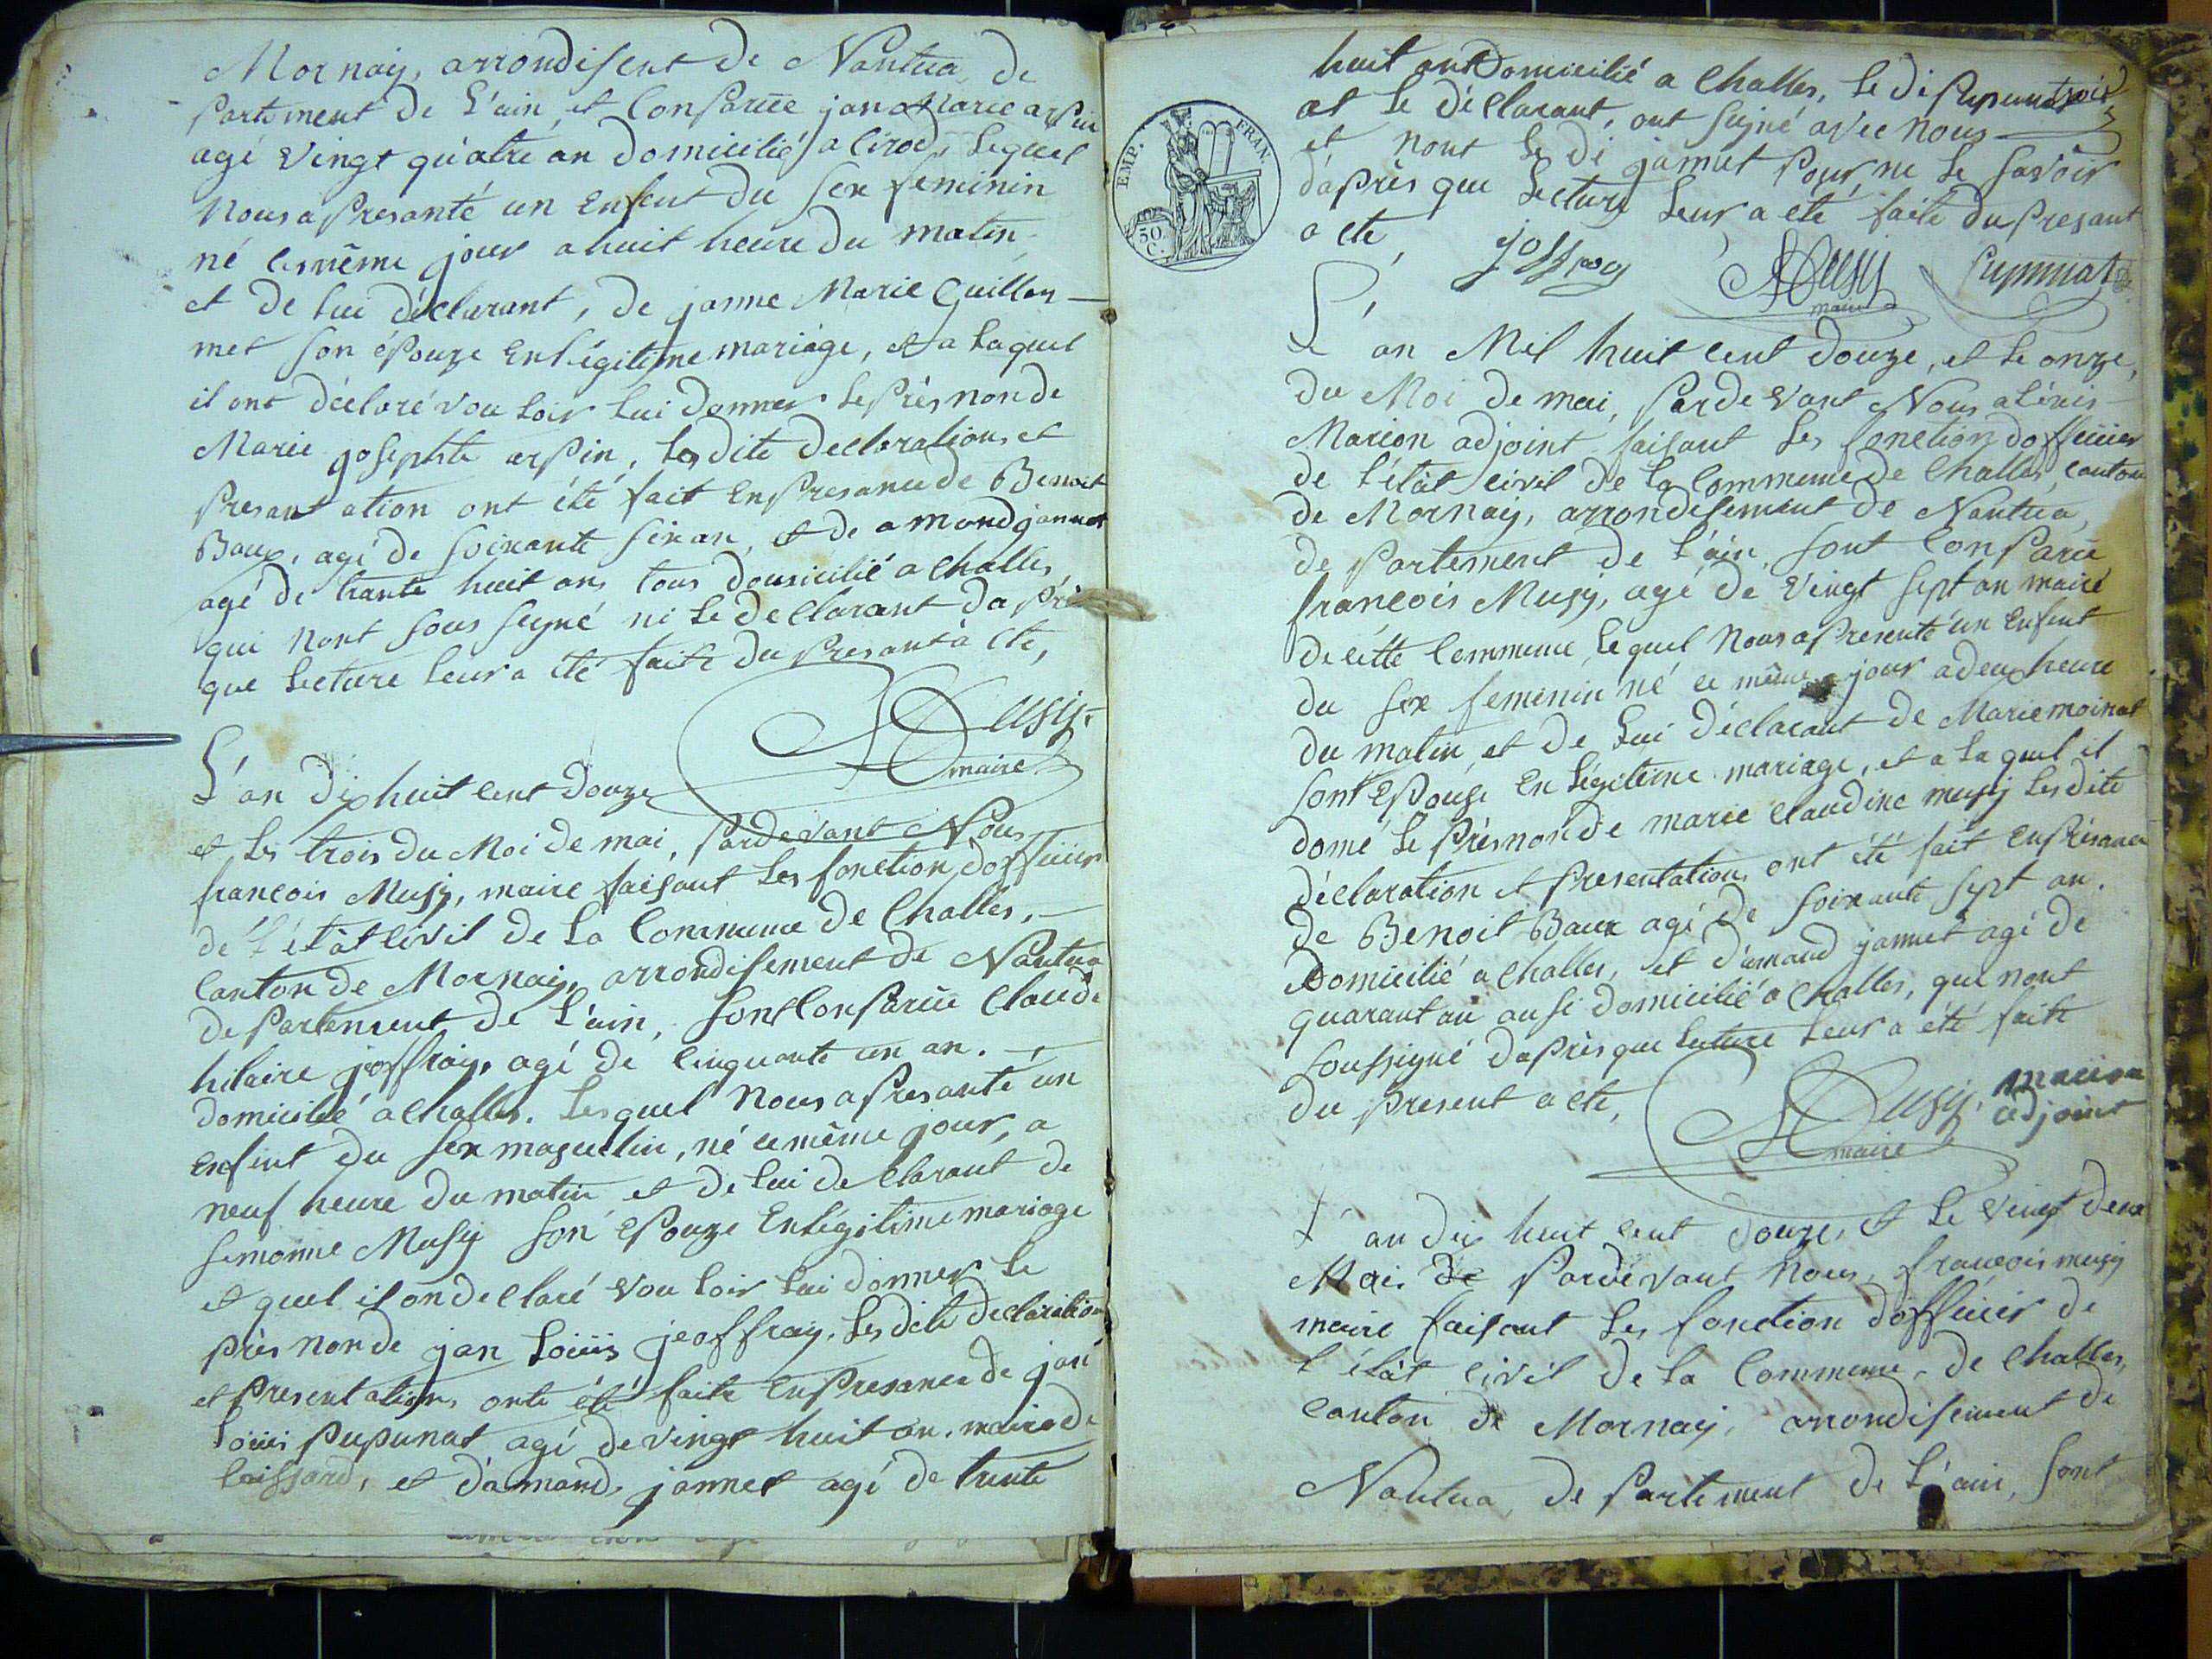 Mornay, arrondisent de Nantua, de
Partement de L'ain, et Conparüe jan Marie arpin
agé vingt quâtre an domicilié a Cirod, Lequel
Nous a Presanté un Enfent du sex feminin
né le même jour a huit heure du matin,
et de lui déclarant, de janne Marie Guillon
met son épouze En légitime mariâge, et a laquel
il ont déclaré vou loir lui donner le Près non de
Marie josephte arpin, les dite declaration et
Presant ation ont été fait En Presance de Benoit
Baux, agé de soixante six an, et de amond jannet
agé de trante huit ans tous domicilié a Challes
qui nont sous signé ni le declarant da Près
que lecture leur a été faite du Presant à cte,
Musy
maire
L'an dix huit cent douze
et les trois du Moi de mai, Pardevant Nous
francois Musy, maire faisant les fonction dofficier
dé l'étât Civil de la Commune de Challes,
Canton de Mornay, arrondisement de Nantua
de Partement de L'ain, sont Conparüe Claude
hilaire joffray, agé de Cinquante un an.
domicilié a Challes. Lesquel Nous a Presanté un
Enfent du sex masculin, né ce même jour, a
neuf heure du matin et de lui de Clarant de
simonne Musy son épouze En légitime mariage
et quel il on de Claré vou loir lui donner le
près non de jan Loüis jeoffray. Les dite declaration
et Presentation, onte été faite En Presance de jan
Loüis Pupunat agé de vingt huit an. maire de
Leissard, et d'amand, jannet agé de trente
EMP. FRAN.
50
C.
huit ant Domicilié a Challes, le di Pupunat
et le déClarant, ont signé avec nous
et nont le di jannet pour ne le savoir
d'après que lecture leur a été faite du Presant
a cte,
joffray Musy Pupunat
maire
L'an Mil huit cent douze, et le onze,
du Moi de mai, Pardevant Nous aléxis
Marion adjoint faisant les fonction dofficier
de l'étât civil de la Commune de Challes, canton
de Mornay, arrondisement de Nantua,
de Partement de L'ain, sont Conparüe
francois Musy, agé de vingt sept an maire
de cette Commune, lequel Nous a Presenté un Enfent
du sex feminin né ce même jour a deux heure
du matin, et de lui déclarant de Marie moinat
sont Epouse En légitime mariage, et a laquel il
doné le Près non de marie Claudine musy les dite
déclaration et Presentation, ont été fait En Présance
de Benoit Baux agé de soixante sept an.
domicilié a Challes, et d'amand jannet agé de
quarant an ausi domicilié a Challes, qui nont
soussigné da Près que lecture leur a été faite
du Present a cte,
Musy, marion
maire adjoint
L'an dix huit cent douze, et le vingt deux
Mai de Pardevant Nous, francois musy
maire faisant les fonction d'officier de
l'étât civil de la Commune, de Challes,
canton de Mornay, arrondisement de
Nantua, de Partement de L'ain, sont